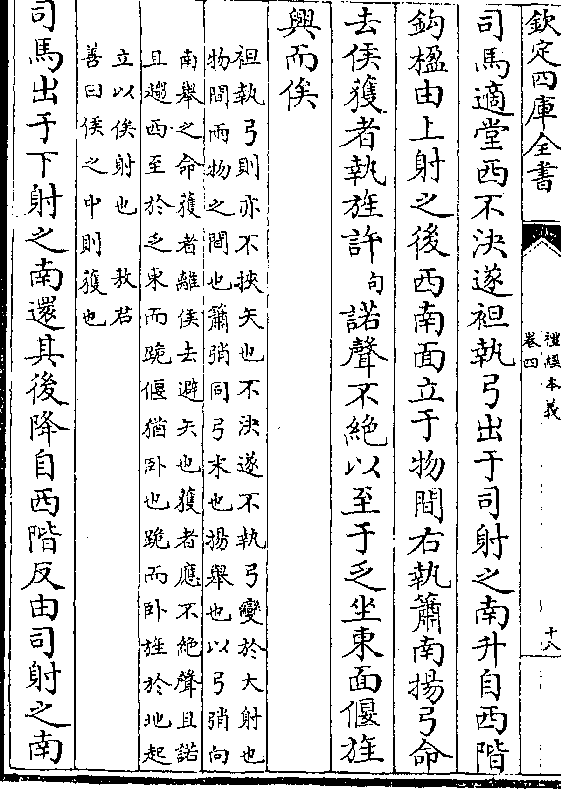 欽定四庫全書
禮經本義
卷四
十八
司馬適堂西不決遂袒執弓出于司射之南升自西階
鈎楹由上射之後西南面立于物間右執簫南揚弓命
去侯獲者執旌許句諾聲不絶以至于乏坐東面偃旌
興而俟
袒執弓則亦不挾矢也不決遂不執弓變於大射也
物間兩物之間也簫弰同弓末也揚舉也以弓弰向
南舉之命獲者離侯去避矢也獲者應不絶聲且諾
且趨西至於乏東而跪偃猶卧也跪而卧旌於地起
立以俟射也 敖君
善曰俟之中則獲也
司馬出于下射之南還其後降自西階反由司射之南